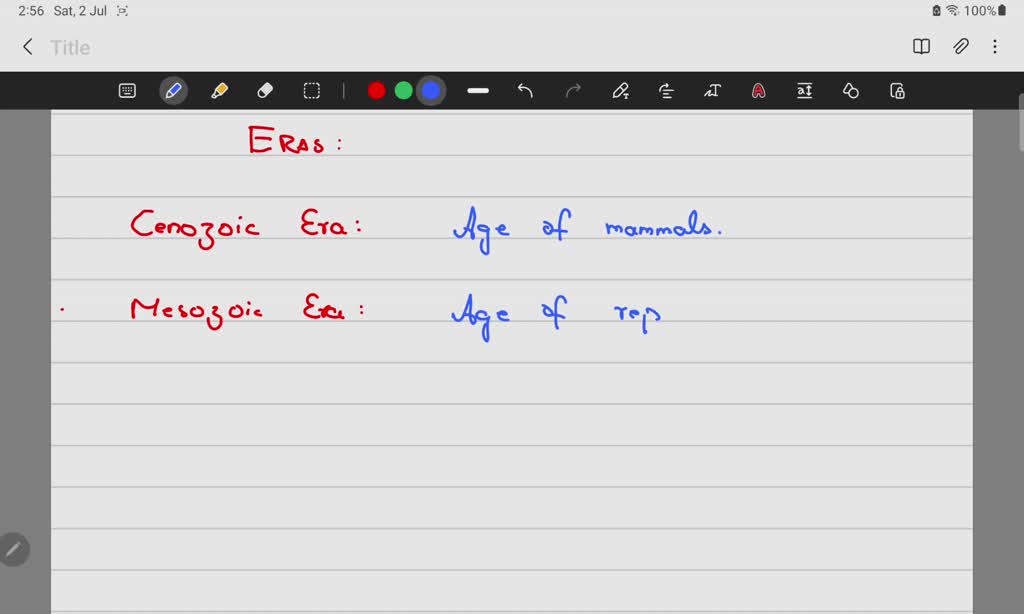 2:56 Sat, 2 Jul 100%
Title
ERAS :
Cenozoic Era : Age of mammals.
Mesozoic Era : Age of rep